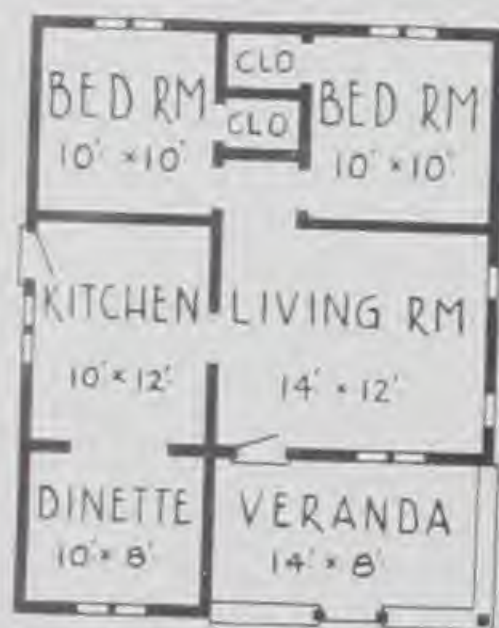 BED RM
10' × 10'
CLO
CLO
BED RM
10' × 10'
KITCHEN
10' × 12'
LIVING RM
14' × 12'
DINETTE
10' × 8'
VERANDA
14' × 8'